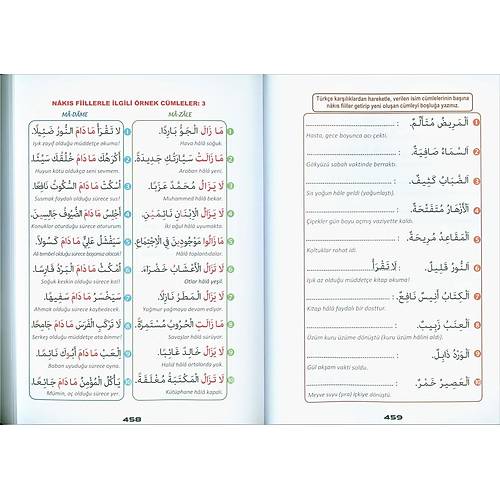 NÂKIS FİİLLERLE İLGİLİ ÖRNEK CÜMLELER: 3
MÂ-DÂME
MÂ-ZÂLE
1 مَا زَالَ الْجَوُّ بَارِدًا.
Hava hâlâ soğuk.
2 مَا زَالَتْ سَيَّارَتُكَ جَدِيدَةً.
Araban hâlâ yeni.
3 لَا يَزَالُ مُحَمَّدٌ عَزَبًا.
Muhammed hâlâ bekar.
4 لَا يَزَالُ الْإِبْنَانِ نَائِمَيْنِ.
İki oğul hâlâ uyumakta.
5 مَا زَالُوا مَوْجُودِينَ فِي الْإِجْتِمَاعِ.
Hâlâ toplantıdalar.
6 لَا تَزَالُ الْأَعْشَابُ خَضْرَاءَ.
Otlar hâlâ yeşil.
7 لَا يَزَالُ الْمَطَرُ نَازِلًا.
Yağmur yağmaya devam ediyor.
8 مَا زَالَتِ الْحُرُوبُ مُسْتَمِرَّةً.
Savaşlar hâlâ sürüyor.
9 لَا يَزَالُ خَالِدٌ غَائِبًا.
Halid hâlâ ortalarda yok.
10 لَا تَزَالُ الْمَكْتَبَةُ مُغْلَقَةً.
Kütüphane hâlâ kapalı.
1 لَا تَقْرَأْ مَا دَامَ النُّورُ ضَئِيلًا.
Işık zayıf olduğu müddetçe okuma!
2 أَكْرَهُكَ مَا دَامَ خُلُقُكَ سَيِّئًا.
Huyun kötü oldukça seni sevmem.
3 أَسْكُتُ مَا دَامَ السُّكُوتُ نَافِعًا.
Susmak faydalı olduğu sürece susar!
4 أَجْلِسُ مَا دَامَ الضُّيُوفُ جَالِسِينَ.
Konuklar oturduğu sürece otururum.
5 سَيَفْشَلُ عَلِيٌّ مَا دَامَ كَسُولًا.
Ali tembel olduğu sürece başarısız olacak!
6 أَمْكُثُ مَا دَامَ الْبَرْدُ قَارِسًا.
Soğuk keskin olduğu sürece kal!
7 سَيَخْسَرُ مَا دَامَ سَفِيهًا.
Ahmak olduğu sürece kaybedecek.
8 لَا تَرْكَبِ الْفَرَسَ مَا دَامَ جَامِحًا.
Serkeş olduğu müddetçe ata binme!
9 اِلْعَبْ مَا دَامَ أَبُوكَ نَائِمًا.
Baban uyuduğu sürece oyna.
10 يَأْكُلُ الْمُؤْمِنُ مَا دَامَ جَائِعًا.
Mümin, aç olduğu sürece yer.
458
Türkçe karşılıklardan hareketle, verilen isim cümlelerinin başına
nâkıs fiiller getirip yeni oluşan cümleyi boşluğa yazınız.
1 اَلْمَرِيضُ مُتَأَلِّمٌ. :
Hasta, gece boyunca acı çekti.
2 اَلسَّمَاءُ صَافِيَةٌ. :
Gökyüzü sabah vaktinde berraktı.
3 اَلضَّبَابُ كَثِيفٌ. :
Sis yoğun hâle geldi (yoğunlaştı).
4 اَلْأَزْهَارُ مُتَفَتِّحَةٌ. :
Çiçekler gün boyu açmış vaziyette kaldı.
5 اَلْمَقَاعِدُ مُرِيحَةٌ. :
Koltuklar rahat idi.
6 اَلنُّورُ قَلِيلٌ. : لَا تَقْرَأْ
Işık az olduğu müddetçe kitap okuma!
7 اَلْكِتَابُ أَنِيسٌ نَافِعٌ. :
Kitap hâlâ faydalı bir dosttur.
8 اَلْعِنَبُ زَبِيبٌ. :
Üzüm kuru üzüme dönüştü (kuru üzüm hâlini aldı).
9 اَلْوَرْدُ ذَابِلٌ. :
Gül akşam vakti soldu.
10 اَلْعَصِيرُ خَمْرٌ. :
Meyve suyu (şıra) içkiye dönüştü.
459